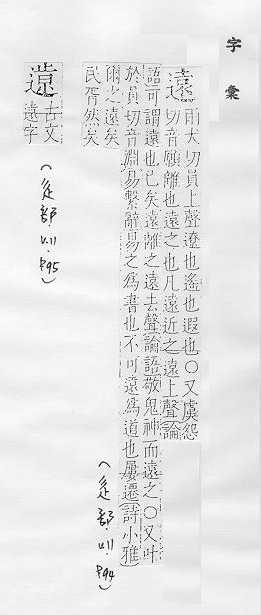 字彙
遠
雨犬切員上聲遼也遙也遐也〇又虞怨
切音願離也遠之也凡遠近之遠上聲論
語可謂遠也已矣遠離之遠去聲論語敬鬼神而遠之〇又叶
於員切音淵易繫辭易之為書也不可遠為道也屢遷詩小雅
爾之遠矣
民胥然矣
(辵部 P94)
古文
遠字
(辵部 P95)